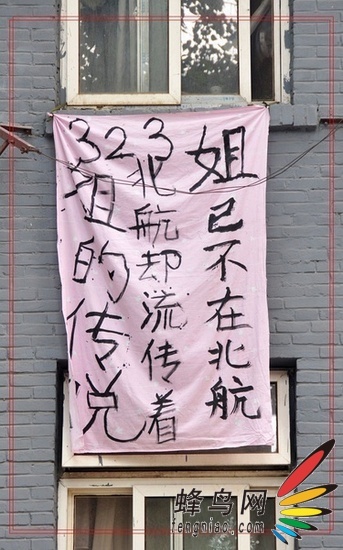 姐已不在北航
北航却流传着
323
姐的传说
蜂鸟网
fengniao.com